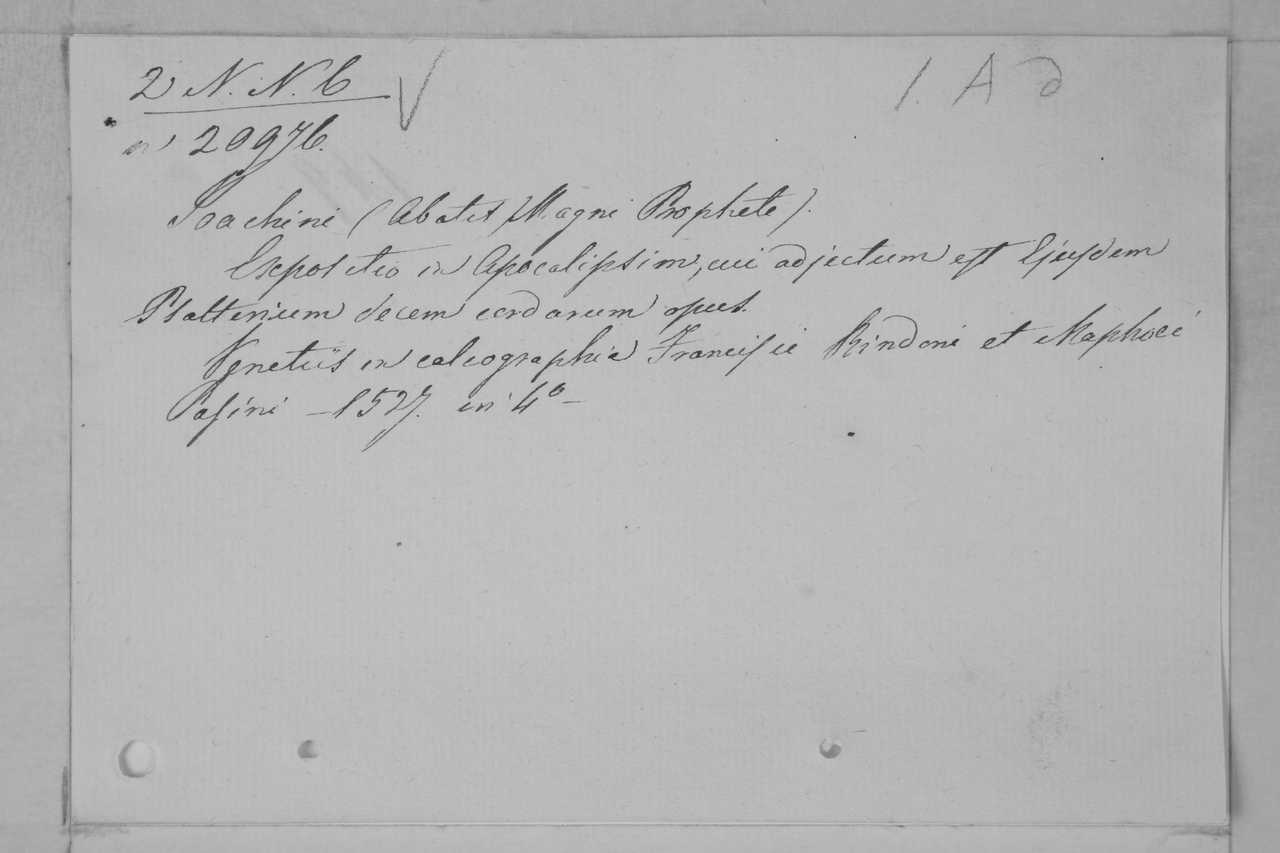 2 N. N. 6
n° 20976.
1. A d
Joachini (Abatis Magni Prophete).
Expositio in Apocalipsim, cui adjectum est Ejusdem
Psalterium decem cordarum opus.
Venetiis in calcographia Francisci Bindoni et Maphoei
Pasini – 1527. in 4° –